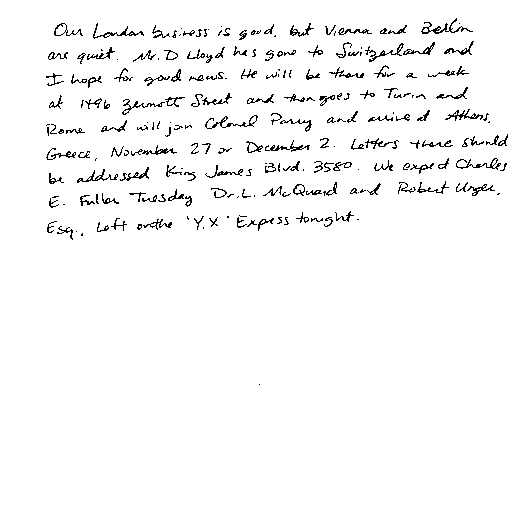 Our London business is good, but Vienna and Berlin
are quiet. Mr. D Lloyd has gone to Switzerland and
I hope for good news. He will be there for a week
at 1496 Zermott Street and then goes to Turin and
Rome and will join Colonel Parry and arrive at Athens,
Greece, November 27 or December 2. Letters there should
be addressed King James Blvd. 3580. We expect Charles
E. Fuller Tuesday Dr. L. McQuaid and Robert Unger,
Esq., Left on the 'Y.X' Express tonight.